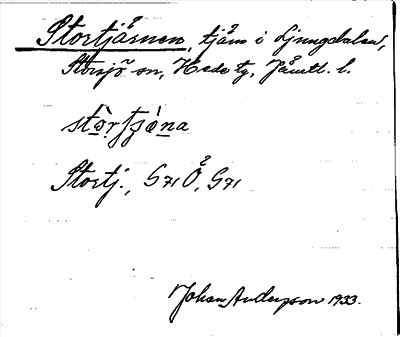 Stortjärnen, tjärn i Ljungdalen,
Storsjö sn, Hede tg, Jämtl. l.
Stortj., G71 Ö, G71
Johan Anderson 1933.